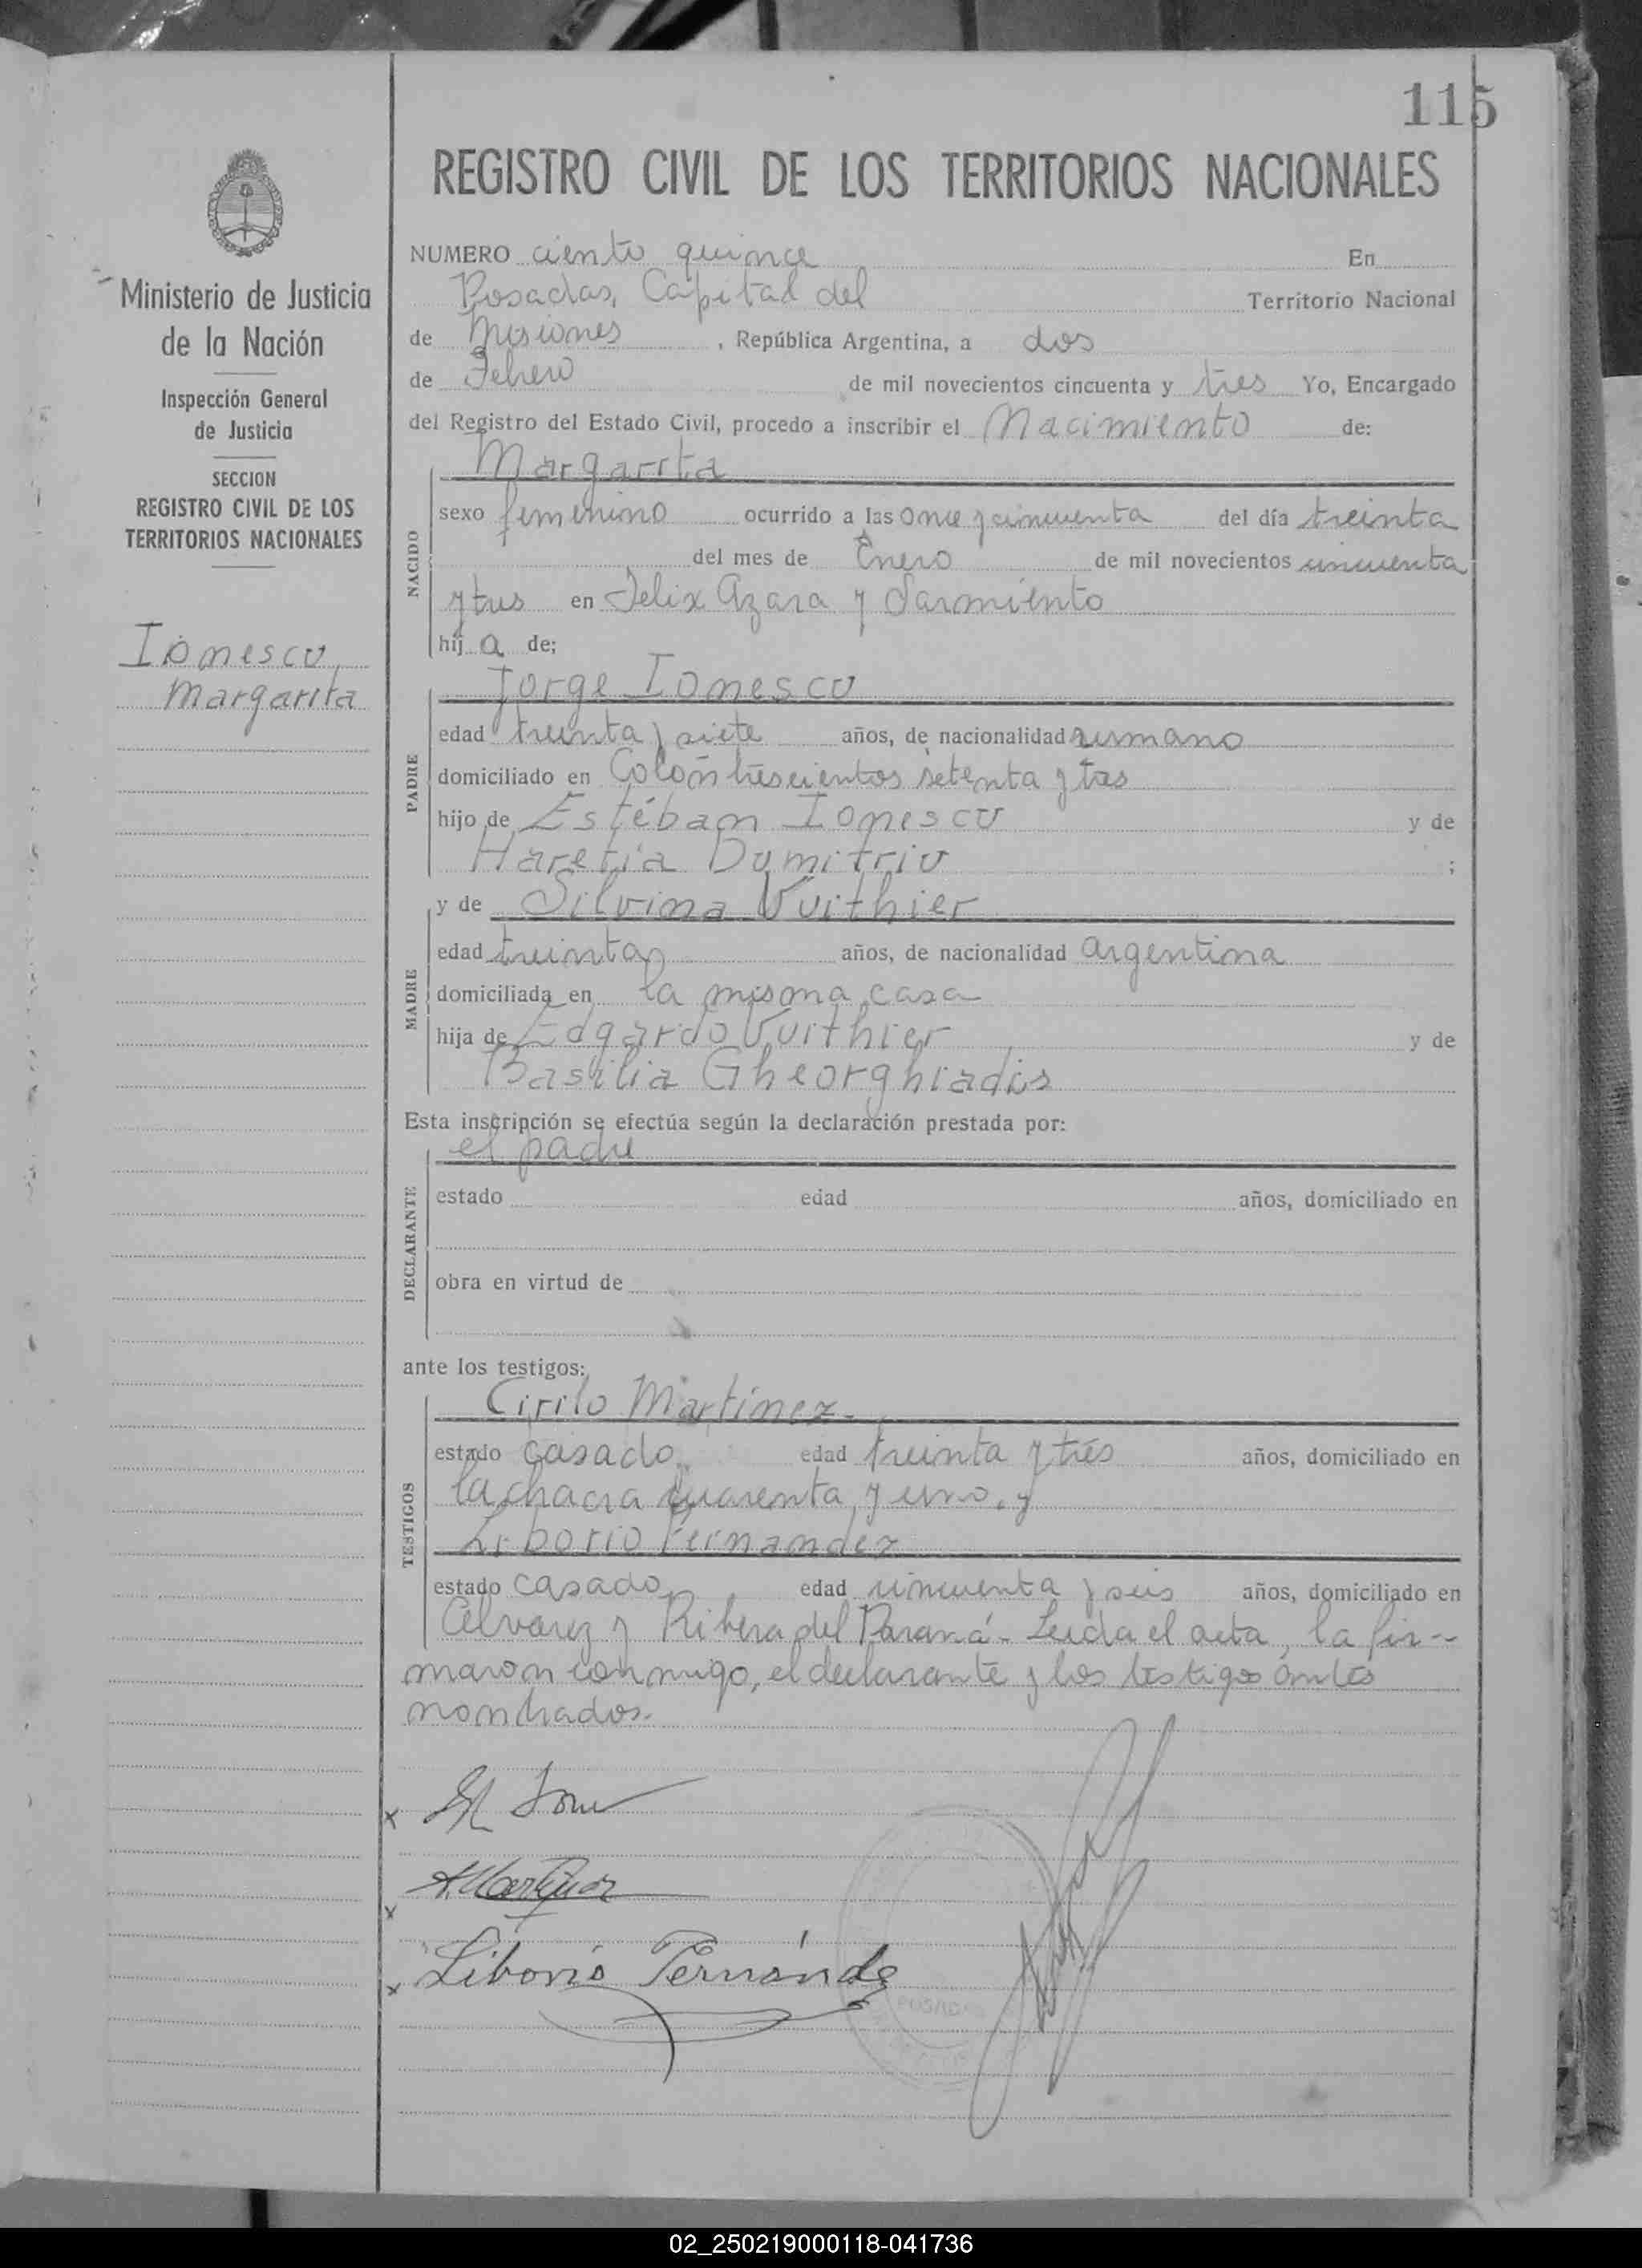 115
REGISTRO CIVIL DE LOS TERRITORIOS NACIONALES
Ministerio de Justicia
de la Nación
Inspección General
de Justicia
SECCION
REGISTRO CIVIL DE LOS
TERRITORIOS NACIONALES
Ionescu
Margarita
NUMERO ciento quince En
Posadas, Capital del Territorio Nacional
de Misiones, República Argentina, a dos
de Febrero de mil novecientos cincuenta y tres Yo, Encargado
del Registro del Estado Civil, procedo a inscribir el Nacimiento de:
NACIDO
Margarita
sexo femenino ocurrido a las once y cincuenta del día treinta
del mes de Enero de mil novecientos cincuenta
y tres en Felix Azara y Sarmiento
hija de;
PADRE
Jorge Ionescu
edad treinta y siete años, de nacionalidad rumano
domiciliado en Colón trescientos setenta y tres
hijo de Estéban Ionescu y de
Haretia Dumitriu ;
MADRE
y de Silvina Vuithier
edad treinta años, de nacionalidad argentina
domiciliada en la misma casa
hija de Edgardo Vuithier y de
Basilia Gheorghiadis
Esta inscripción se efectúa según la declaración prestada por:
DECLARANTE
el padre
estado edad años, domiciliado en
obra en virtud de
ante los testigos:
TESTIGOS
Cirilo Martínez-
estado casado edad treinta y tres años, domiciliado en
la chacra cuarenta y uno, y
Liborio Fernandez
estado casado edad cincuenta y seis años, domiciliado en
Alvarez y Ribera del Paraná- Leida el acta, la fir-
maron conmigo, el declarante y los testigos ántes
nombrados-
x
x
x Liborio Fernánde
POSADAS
02_250219000118-041736